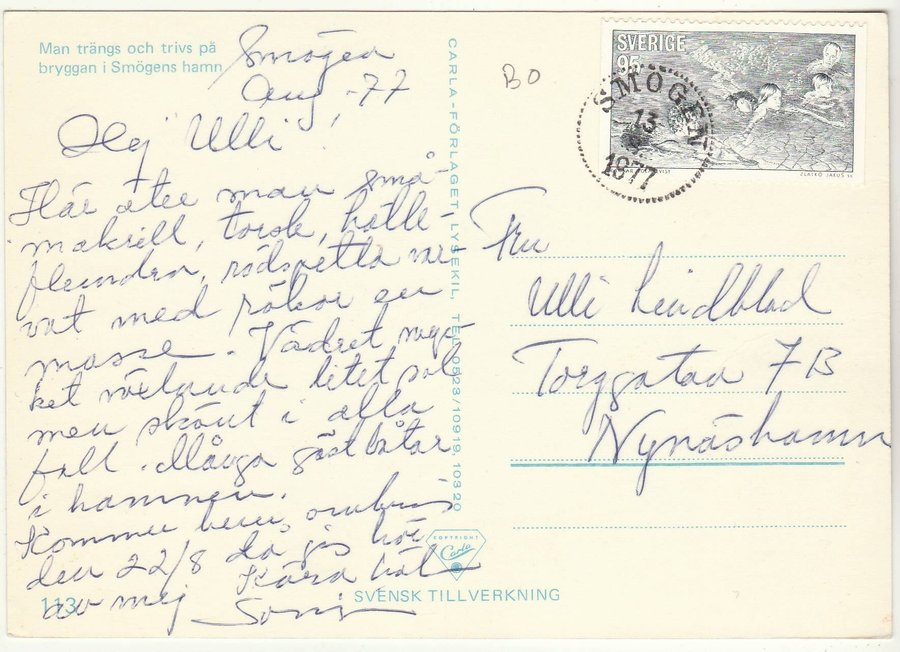 Man trängs och trivs på
bryggan i Smögens hamn
Smögen
Aug -77
Hej Ulli!
Här äter man små-
makrill, torsk, hälle-
flundra, rödspetta var-
vat med räkor en
masse. Vädret myc-
ket växlande litet sol
men skönt i alla
fall. Många gästbåtar
i hamnen.
Kommer hem omkring
den 22/8 då jag hör
av mig Kära häls
113
CARLA-FÖRLAGET LYSEKIL, TEL. 0523/10919, 10320
COPYRIGHT
Carla
SVENSK TILLVERKNING
BO
SVERIGE
95
ZLATKO JAKUS SC
SMÖGEN
13
1977
Fru
Ulli Lindblad
Torggatan 7B
Nynäshamn